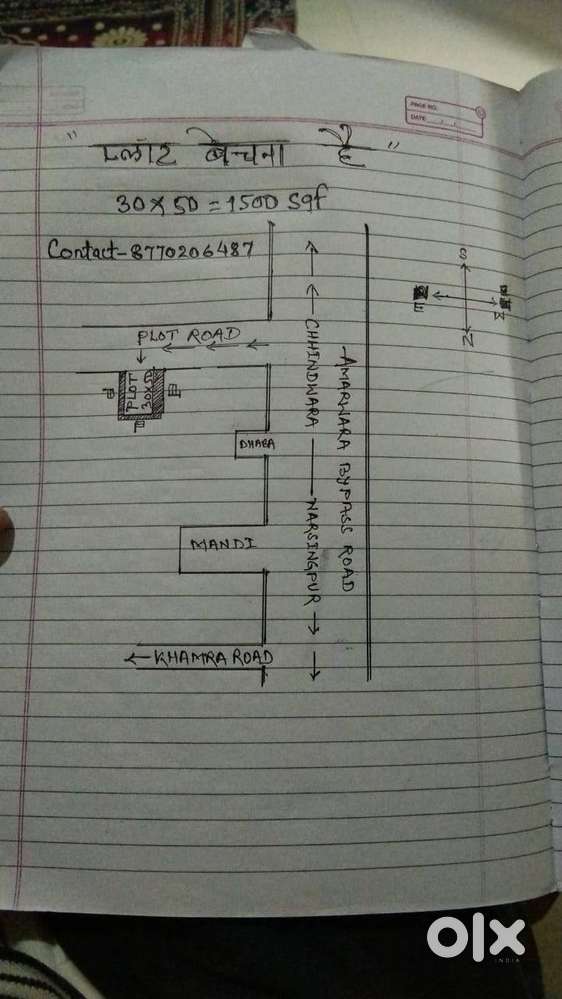 PAGE NO.
DATE
"प्लाट बेचना है"
30×50=1500 Sqf
Contact-8770206487
S
E
N
PLOT ROAD
PLOT
30×50
DHABA
MANDI
CHHINDWARA
NARSINGPUR
AMARWARA BYPASS ROAD
KHAMRA ROAD
olx
INDIA